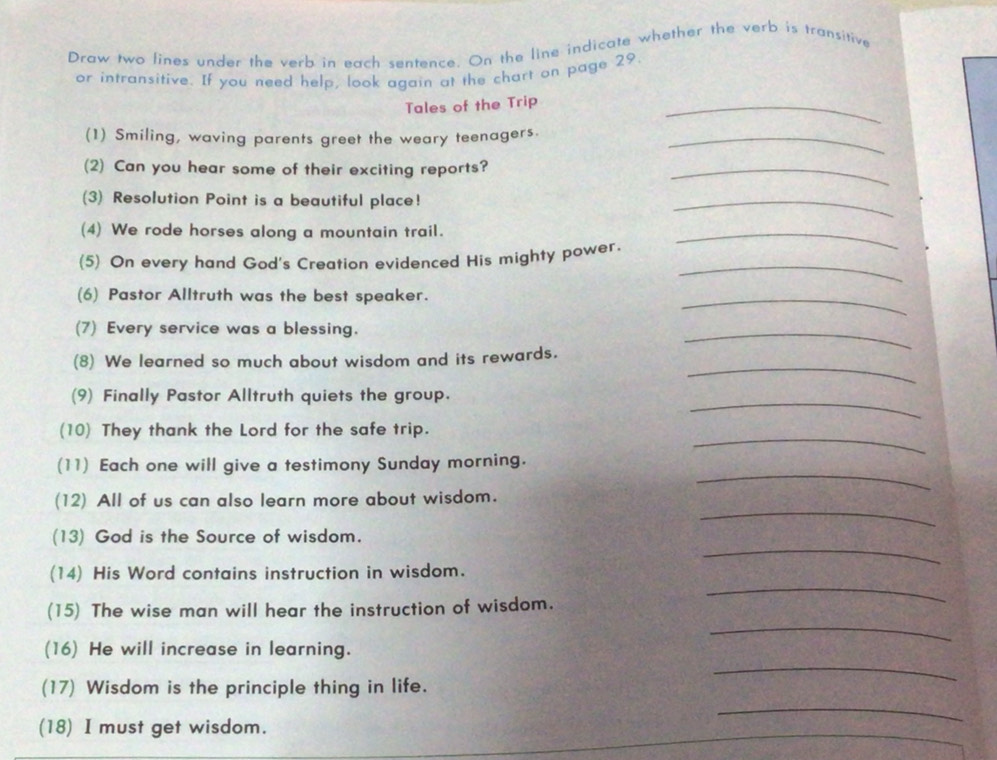 Draw two lines under the verb in each sentence. On the line indicate whether the verb is transitive
or intransitive. If you need help, look again at the chart on page 29.
Tales of the Trip
(1) Smiling, waving parents greet the weary teenagers.
(2) Can you hear some of their exciting reports?
(3) Resolution Point is a beautiful place!
(4) We rode horses along a mountain trail.
(5) On every hand God's Creation evidenced His mighty power.
(6) Pastor Alltruth was the best speaker.
(7) Every service was a blessing.
(8) We learned so much about wisdom and its rewards.
(9) Finally Pastor Alltruth quiets the group.
(10) They thank the Lord for the safe trip.
(11) Each one will give a testimony Sunday morning.
(12) All of us can also learn more about wisdom.
(13) God is the Source of wisdom.
(14) His Word contains instruction in wisdom.
(15) The wise man will hear the instruction of wisdom.
(16) He will increase in learning.
(17) Wisdom is the principle thing in life.
(18) I must get wisdom.